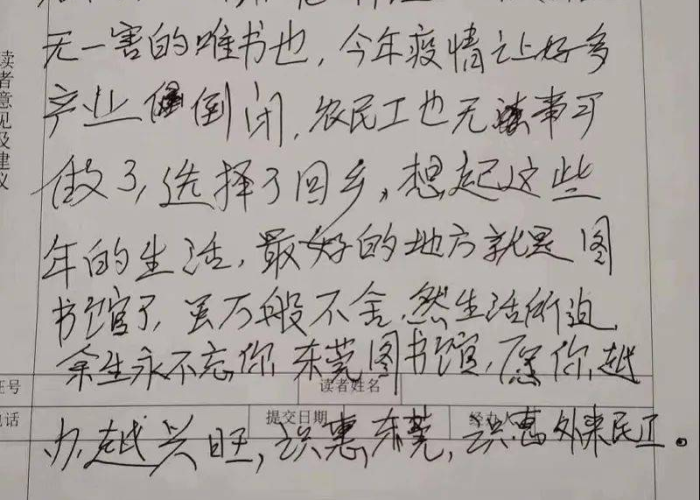 无一害的唯书也,今年疫情让好多
产业倒闭,农民工也无事可
做了,选择了回乡,想起这些
年的生活,最好的地方就是图
书馆了,虽万般不舍,然生活所迫,
余生永不忘你,东莞图书馆,愿你越
办越兴旺,识惠东莞,识惠外来民工。
读者意见及建议
证号
读者姓名
电话
提交日期
经办